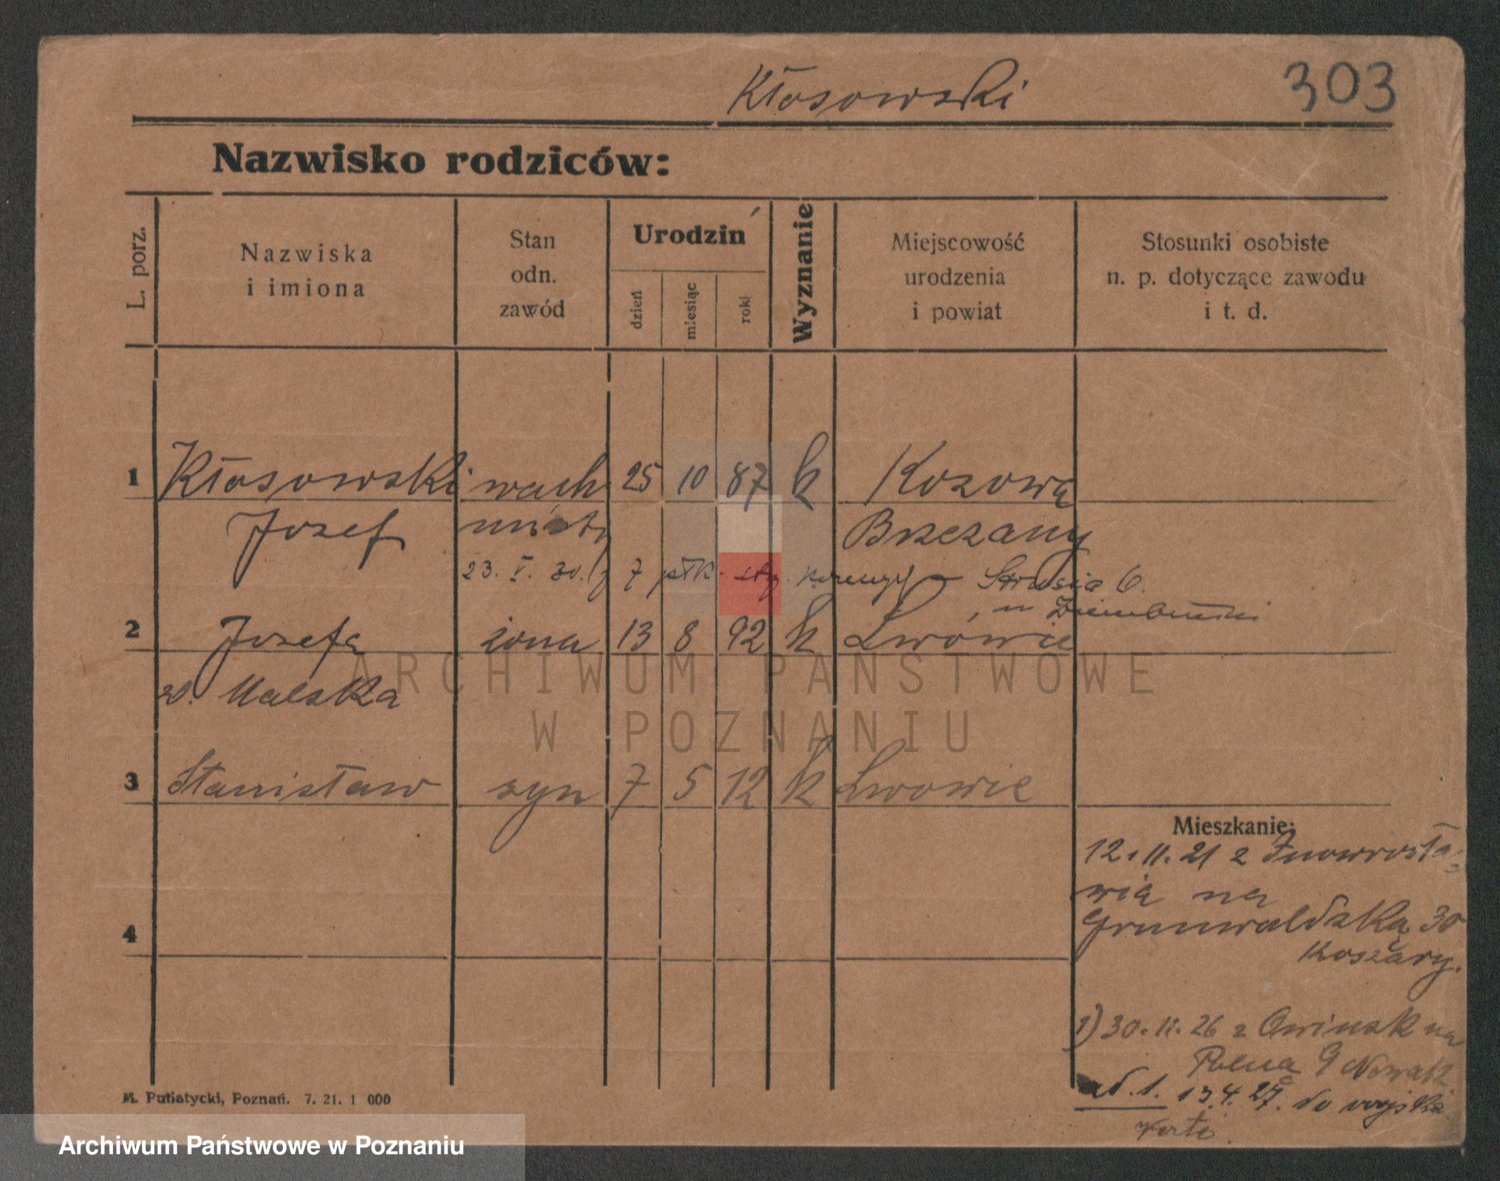 Kłosowski 303
Nazwisko rodziców:
L. porz.
Nazwiska
i imiona
Stan
odn.
zawód
Urodziń
dzień
miesiąc
roki
Wyznanie
Miejscowość
urodzenia
i powiat
Stosunki osobiste
n. p. dotyczące zawodu
i t. d.
1 Kłosowski wach 25 10 87 k Kozowa
Jozef mistr Brzezany
23. V. 30. 7 płk. Strusia 6.
2 Jozefa żona 13 8 92 k Lwówie
Malska
3 Stanisław syn 7 5 12 k Lwowie
4
Mieszkanie:
12.11.21 z Inowrocła-
wia na
Grunwaldzka 30
Koszary.
1) 30.11.26 z Owinsk na
Polna 9 Nowak
ad. 1. 13.4.27. do wojska
M. Putiatycki, Poznań. 7. 21. 1 000
ARCHIWUM PAŃSTWOWE
W POZNANIU
Archiwum Państwowe w Poznaniu